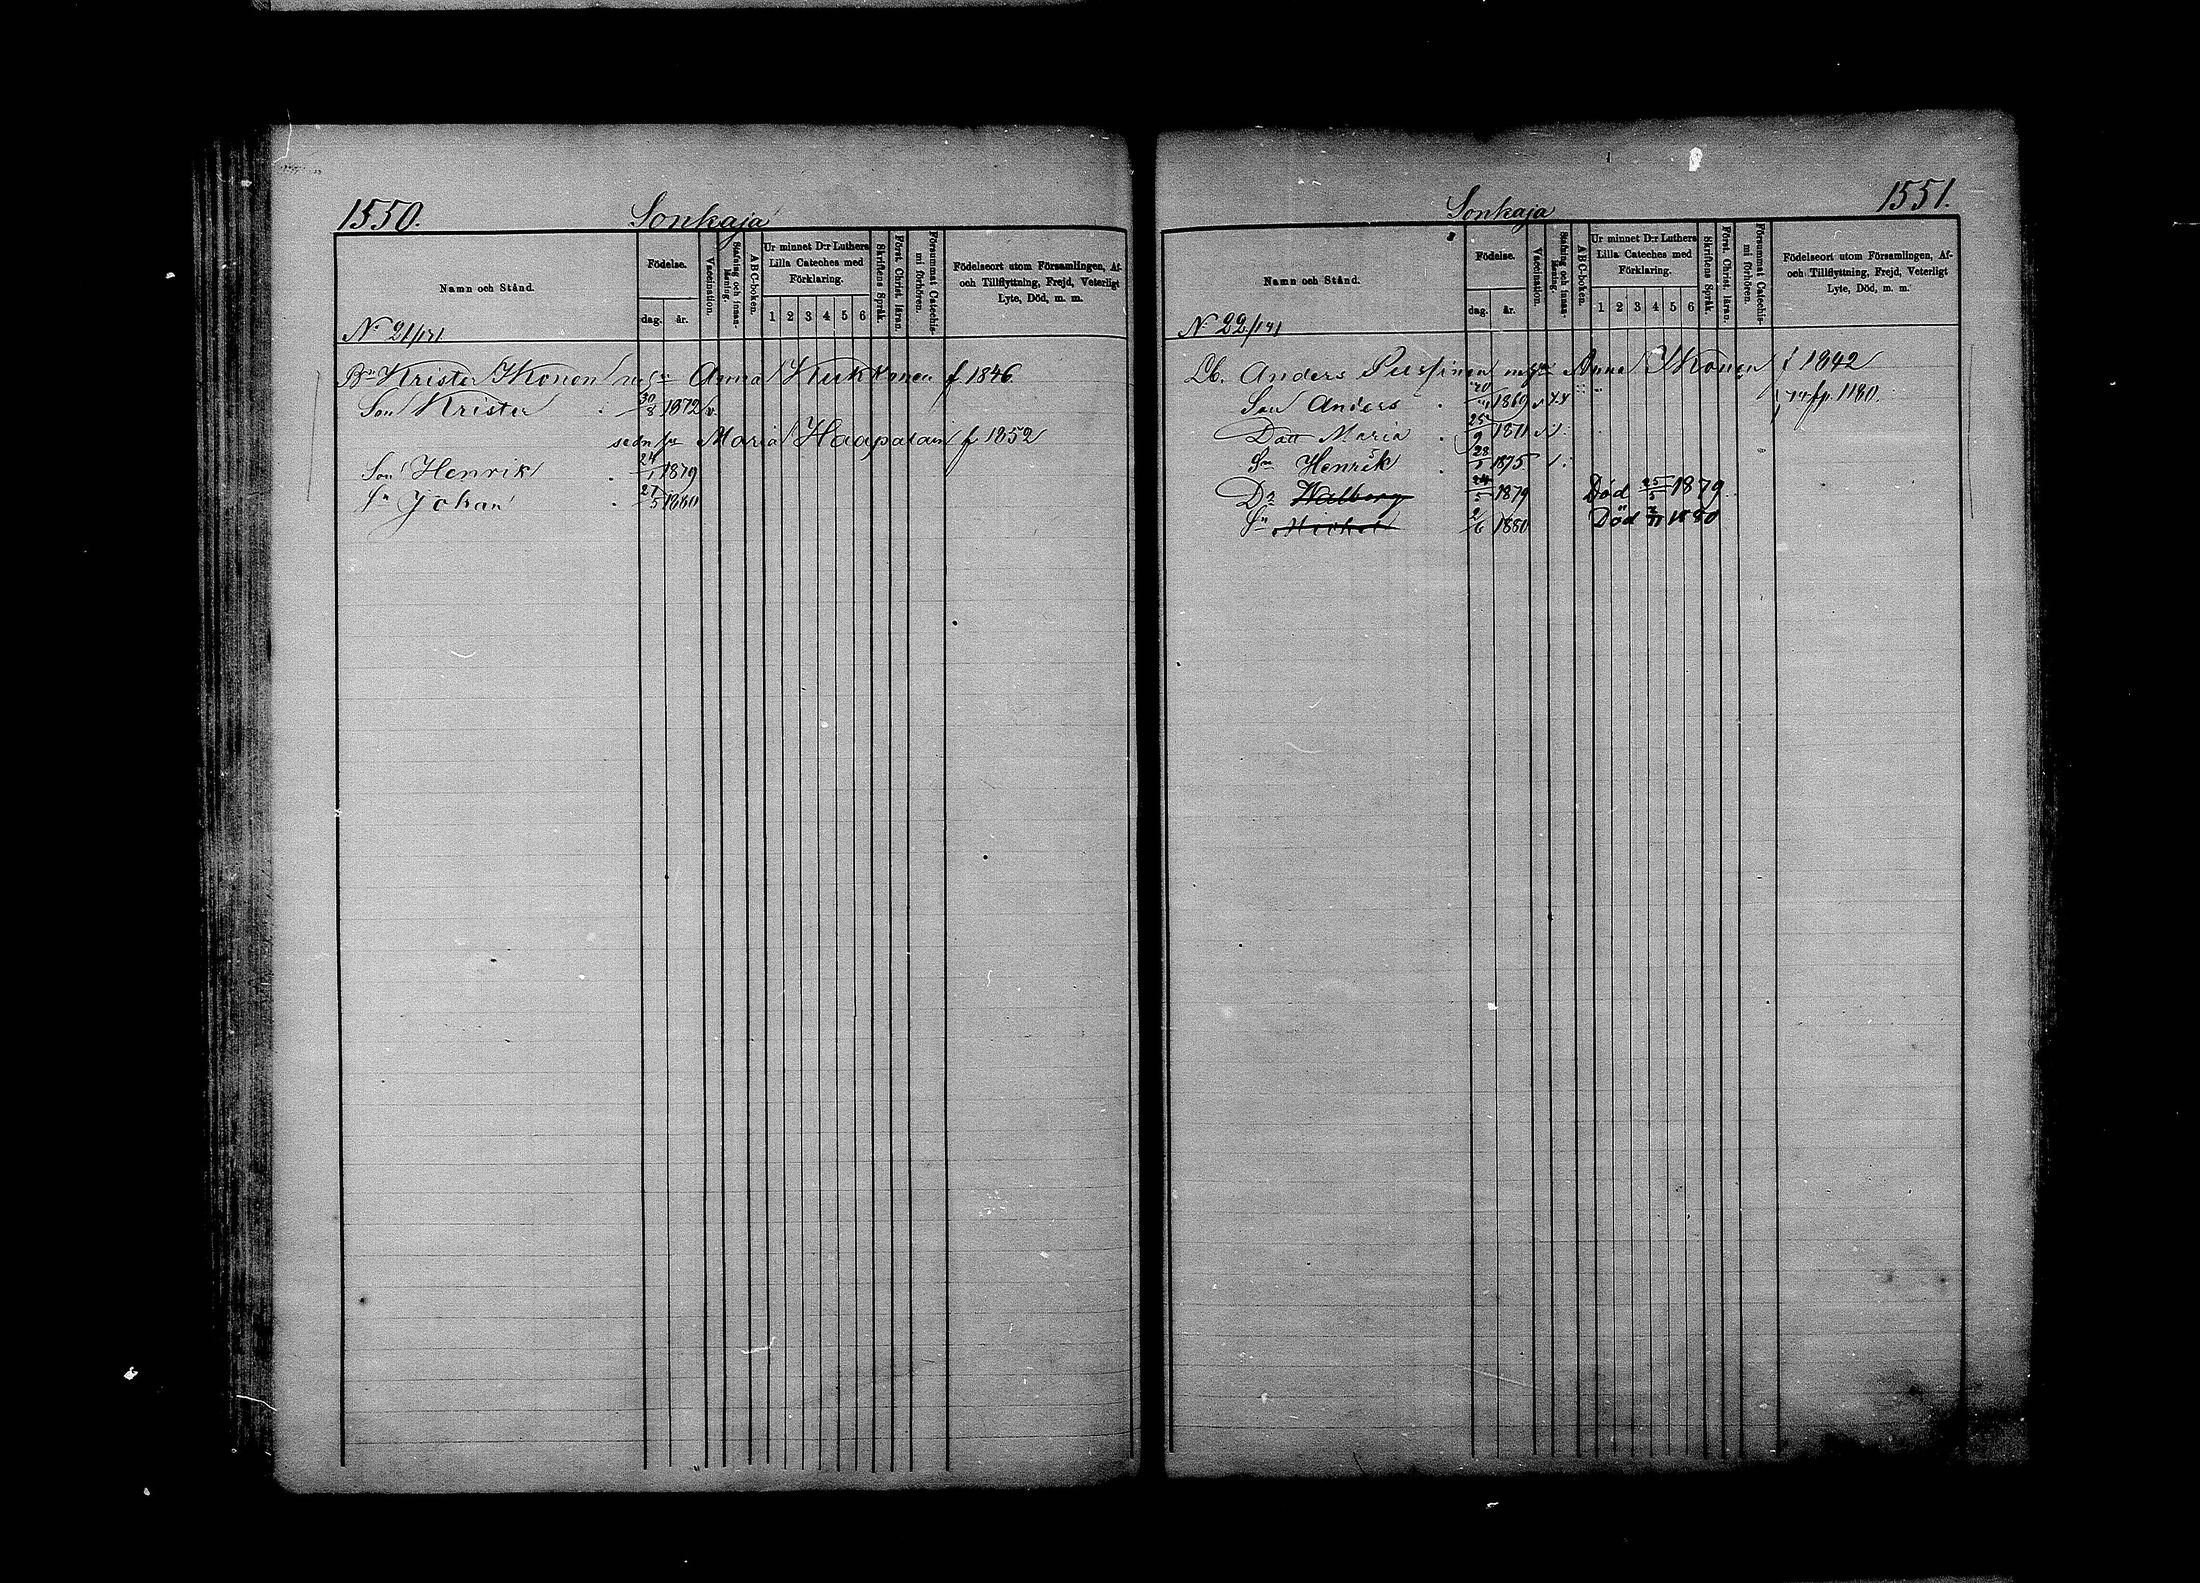 1550.
Sonkaja
Namn och Stånd.
Födelse.
dag. år.
Vaccination.
Stafning och innan-läsning.
ABC-boken.
Ur minnet D:r Luthers
Lilla Cateches med
Förklaring.
1 2 3 4 5 6
Skriftens Språk.
Först. Christ. läran.
Försummat Catechis-
mi förhören.
Födelseort utom Församlingen, Af-
och Tillflyttning, Frejd, Veterligt
Lyte, Död, m. m.
N:o 21/141
Bn Krister Ikonen Anna Kukkonen f 1846.
Son Krister 30/8 1872 v.
sedn Maria Haapalain f 1852
Son Henrik 24/1 1879
Sn Johan 27/5 1880
1551.
Sonkaja
Namn och Stånd.
Födelse.
dag. år.
Vaccination.
Stafning och innan-läsning.
ABC-boken.
Ur minnet D:r Luthers
Lilla Cateches med
Förklaring.
1 2 3 4 5 6
Skriftens Språk.
Först. Christ. läran.
Försummat Catechis-
mi förhören.
Födelseort utom Församlingen, Af-
och Tillflyttning, Frejd, Veterligt
Lyte, Död, m. m.
N:o 22/141
Lb. Anders Pussinen Anna Ikonen f 1842
Son Anders 1869 fr p. 1180.
Dott Maria 25/9 1871
Sn Henrik 28/1 1875
Dr Walborg 24/5 1879 Död 25/5 1879
Sn Mickel 2/6 1880 Död 1880